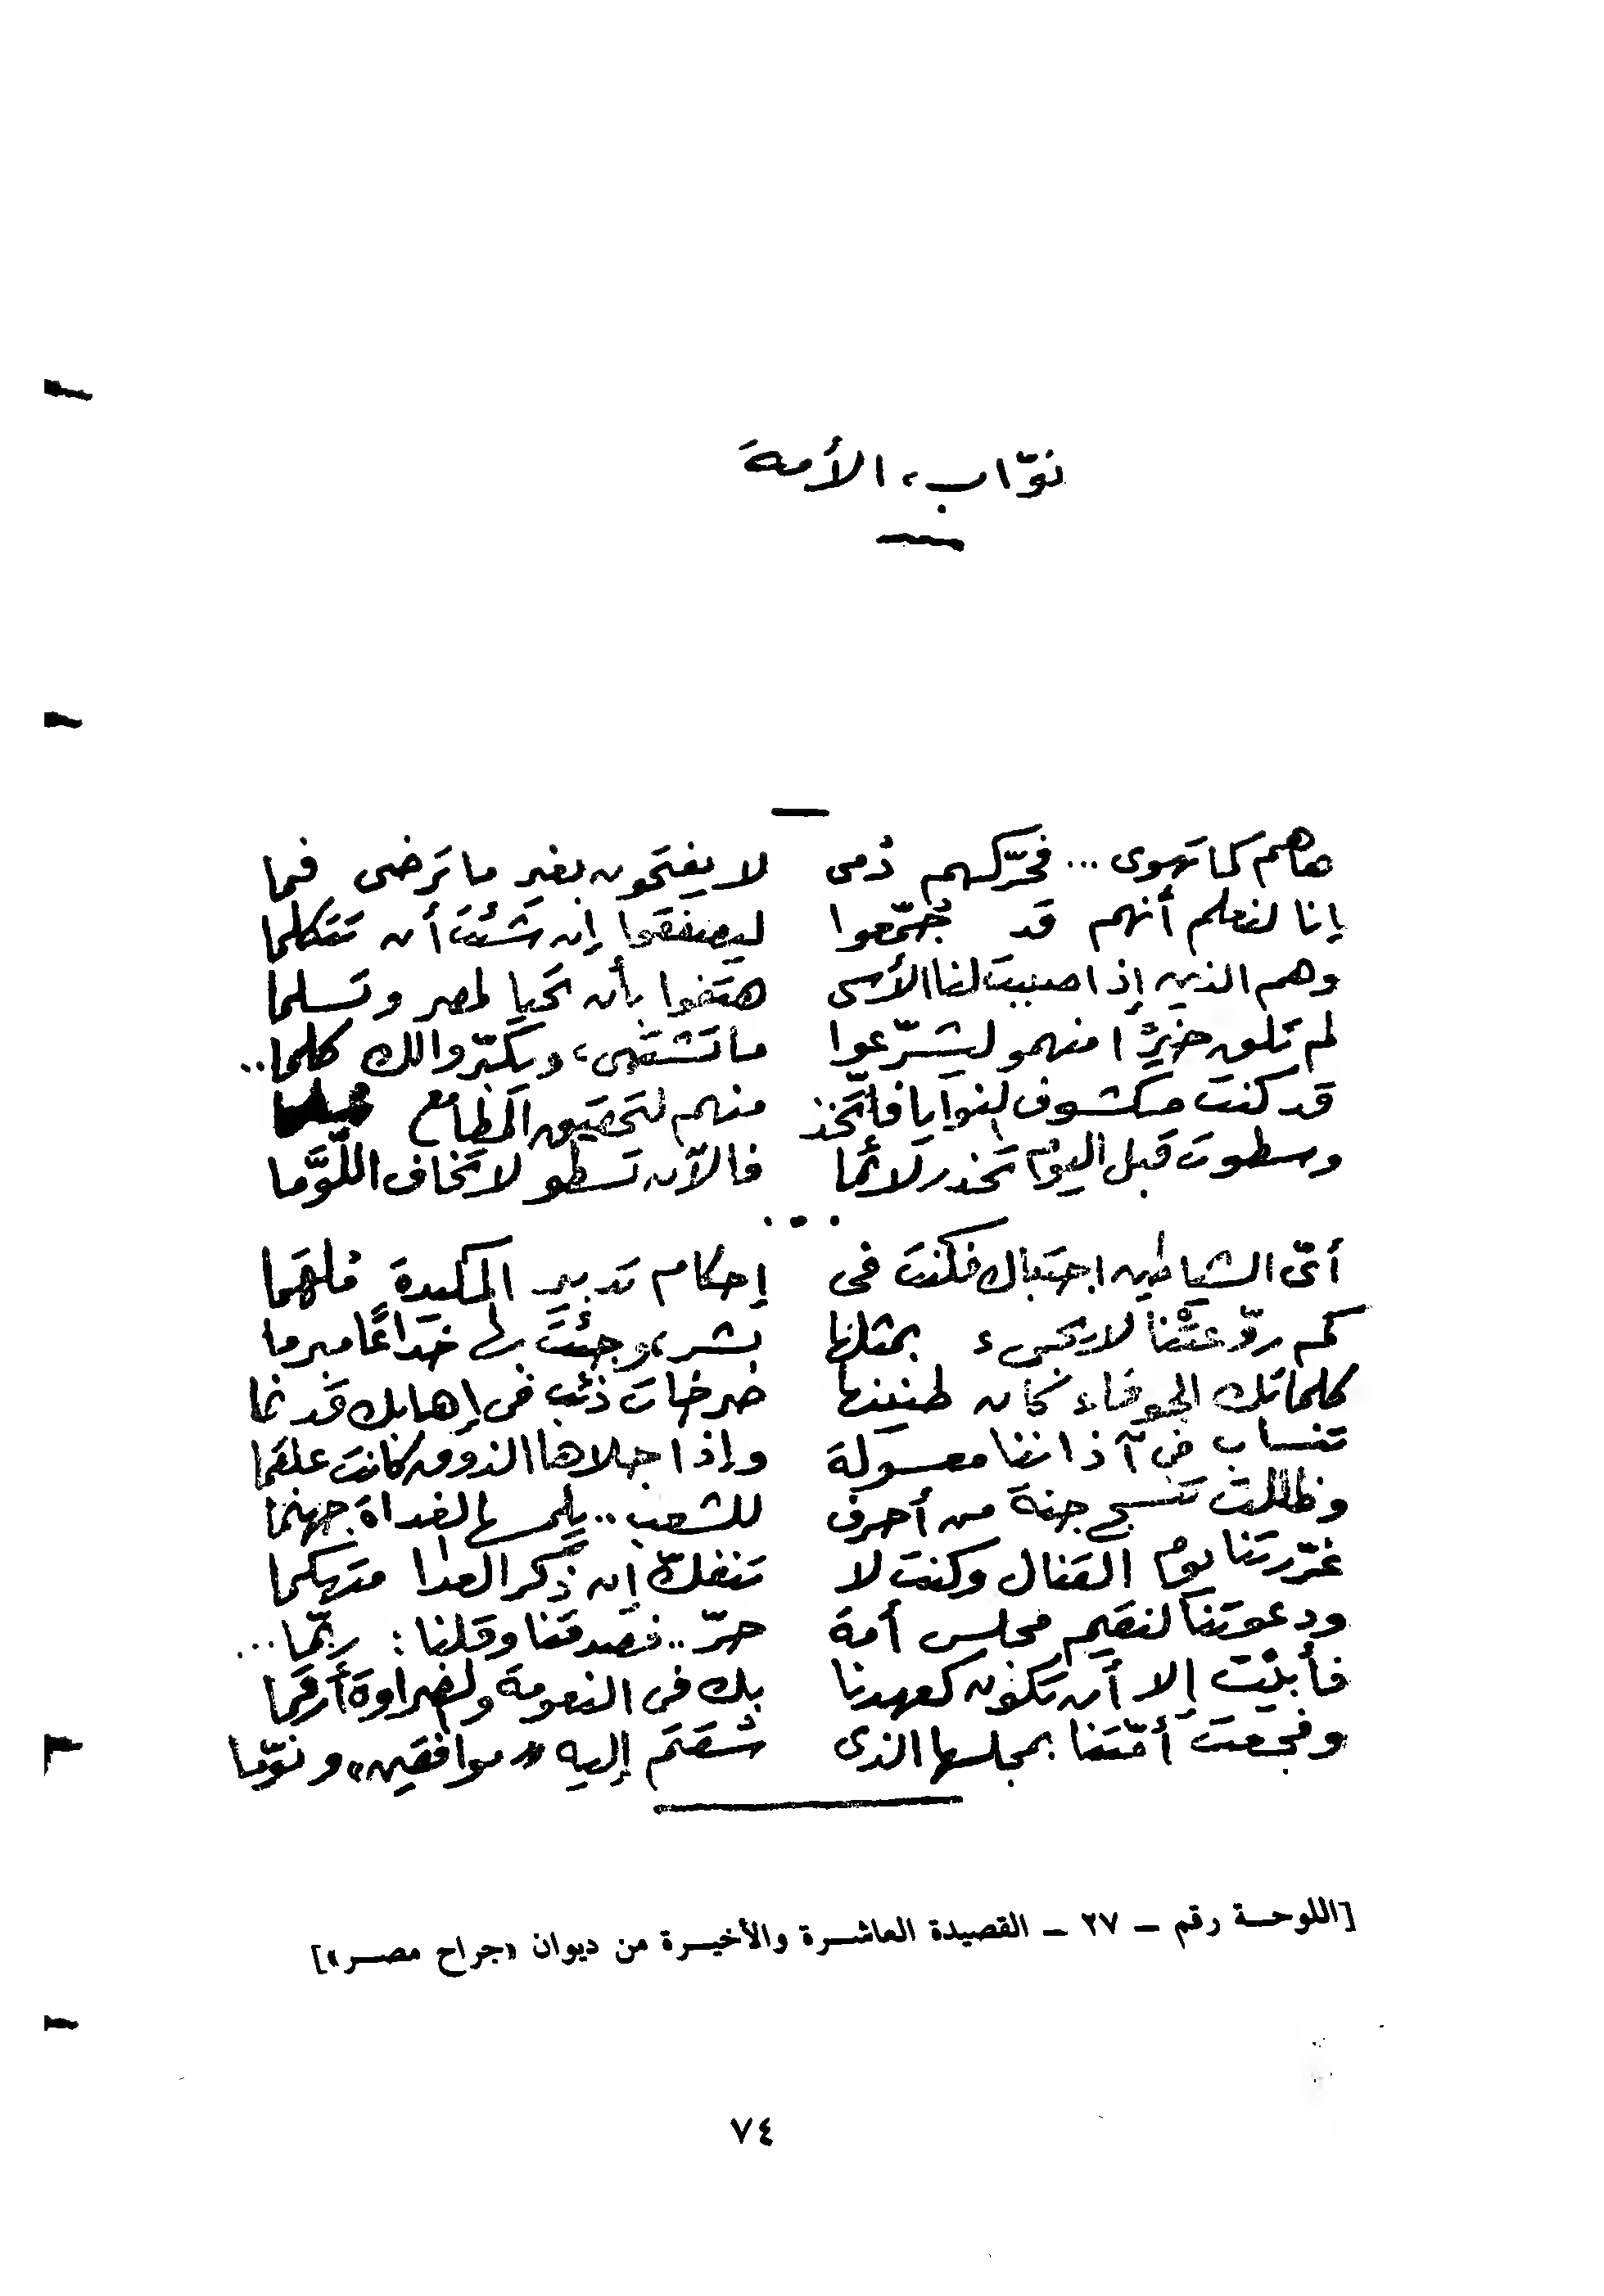 نوّاب، الأمة
هاهم كما تهوى ... فحرّكهم دُمى لا يفتحون بغير ما تَرضى فما
إنا لنعلم أنهم قد جُمّعوا ليصفقوا إن شئتَ أن تتكلما
وهم الذين إذا صببتَ لنا الأسى هتفوا بأن تحيا لمصر وتسلما
لم تلق خيرًا منهمو ليشرّعوا ما تشتهى، ويكبّروا لك كلما..
قد كنت مكشوف النوايا فاتّخذ منهم لتحقيق المطامع
وسطوت قبل اليوم تحذر لائما فالآن تسطو لا تخاف اللُّوَّما
...
أىّ الشياطين اجتباك فكنت فى إحكام تدبير المكيدة مُلهَما
كم روّعتْنا لا يجىء بمثلها بشر، وجئتَ بها خداعًا مبرما
كلماتك الجوفاء كان طنينها صرخات ذئب فى إهابك قد نما
تنساب فى آذاننا معسولة وإذا جلاها الذوق كانت علقما
وظللت تنسج جنة من أحرف للشعب .. يلمسها الغداة جهنما
غرّرتنا يوم القنال وكنت لا تنفكّ إن ذُكر العدا متهكما
ودعوتنا لنقيم مجلس أمة حرّ .. فصدقنا وقلنا : ربّما ...
فأبيْت إلا أن تكون كعهدنا بك فى النعومة والضراوة أرقما
وفجعت أمّتنا بمجلسها الذى سُقتَم إليه «موافقين» ونوّما
[اللوحة رقم – ٢٧ – القصيدة العاشرة والأخيرة من ديوان «جراح مصر»]
٧٤